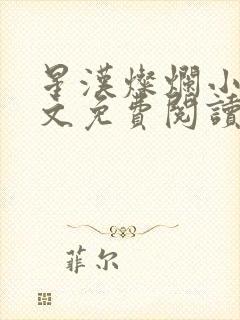 星漢燦爛小
文免費閱讀
菲尔